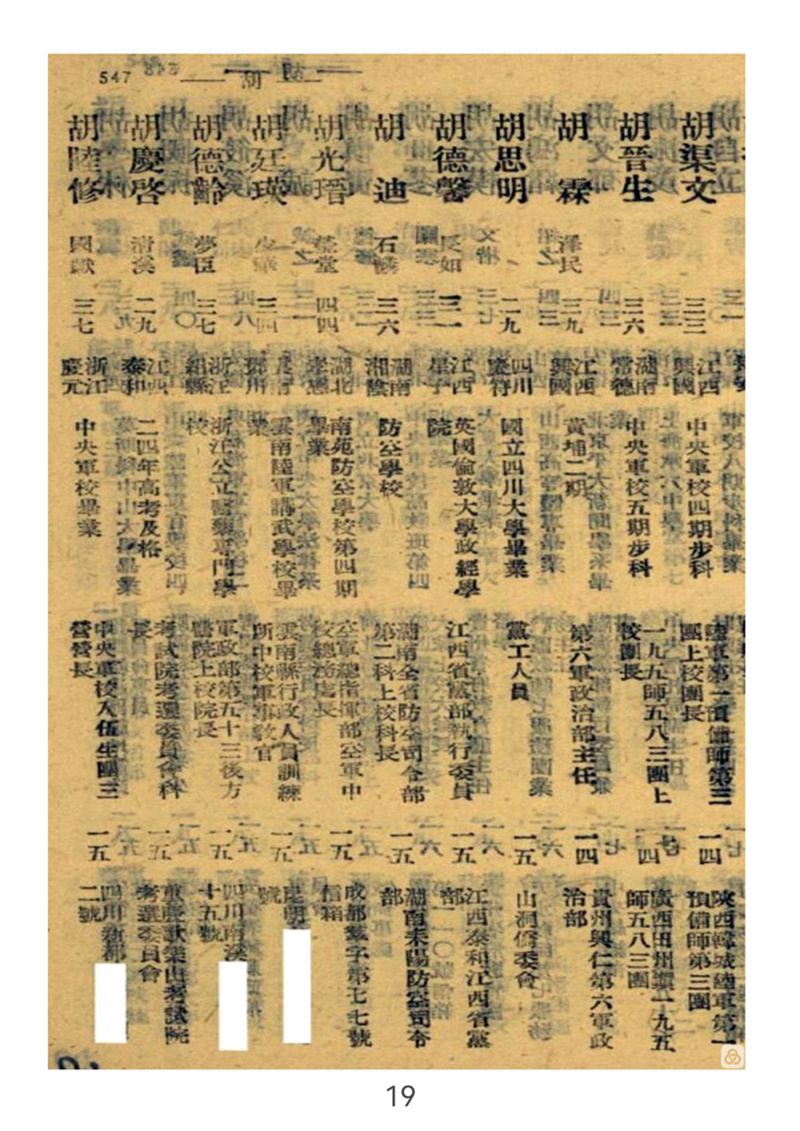 547
胡
胡渠文
三三
江西
興國
中央軍校四期步科
陸軍第一預備師第三
團上校團長
一四
陝西韓城陸軍第一
預備師第三團
胡晉生
三六
湖南
常德
中央軍校五期步科
一九五師五八三團上
校團長
一四
廣西田州鎮一九五
師五八三團
胡霖
澤民
三九
江西
興國
黃埔二期
第六軍政治部主任
一四
貴州興仁第六軍政
治部
胡思明
二九
四川
慶符
國立四川大學畢業
黨工人員
一五
山洞僑委會
胡德馨
民如
三一
江西
星子
英國倫敦大學政經學
院
江西省黨部執行委員
一五
江西泰和江西省黨
部
胡迪
石麟
三六
湖南
湘陰
防空學校
湖南全省防空司令部
第二科上校科長
一五
湖南耒陽防空司令
部
胡光瑨
藎堂
四四
湖北
孝感
南苑防空學校第四期
畢業
空軍總指揮部空軍中
校總務處長
一五
成都籤字第七七號
信箱
胡廷瑛
三四
雲南
鄧川
雲南陸軍講武學校畢
業
雲南縣行政人員訓練
所中校軍事教官
一五
昆明
號
胡德齡
夢臣
三七
浙江
浙江公立醫藥專門學
校
軍政部第五十三後方
醫院上校院長
一五
四川南溪
十五號
胡慶啓
清溪
二九
江西
泰和
二四年高考及格
考試院考選委員會科
長
一五
重慶歌樂山考試院
考選委員會
胡陸修
國獻
三七
浙江
慶元
中央軍校畢業
中央軍校入伍生團三
營營長
一五
四川新都
二號
19